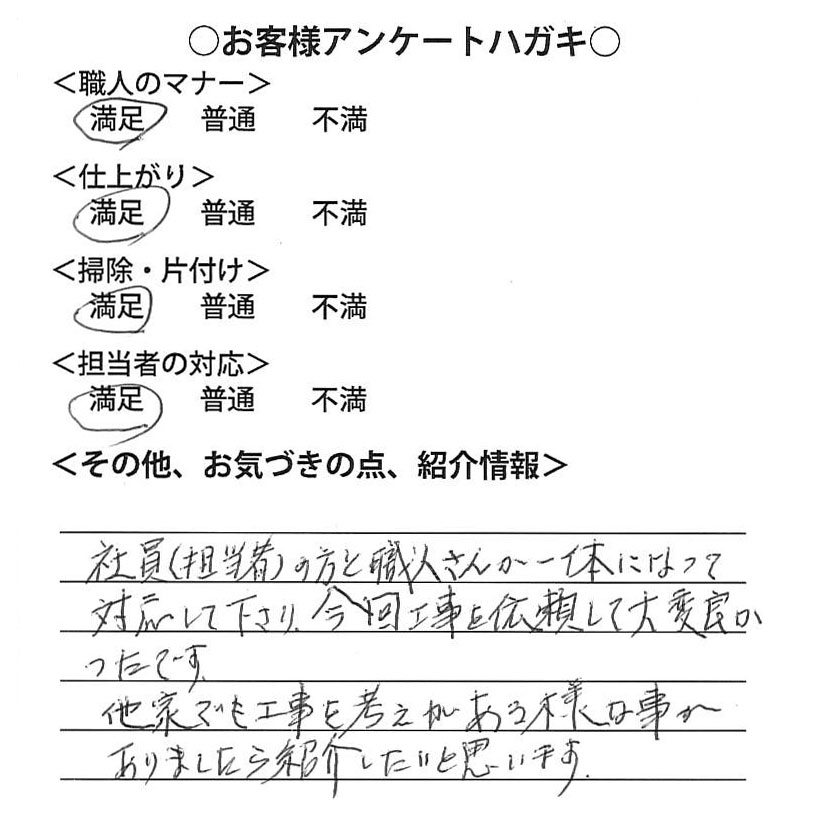 ○お客様アンケートハガキ○
＜職人のマナー＞
満足 普通 不満
＜仕上がり＞
満足 普通 不満
＜掃除・片付け＞
満足 普通 不満
＜担当者の対応＞
満足 普通 不満
＜その他、お気づきの点、紹介情報＞
社員(担当者)の方と職人さんが一体になって
対応して下さり、今回工事を依頼して大変良か
ったです。
他家でも工事を考えがある様な事が
ありましたら紹介したいと思います。